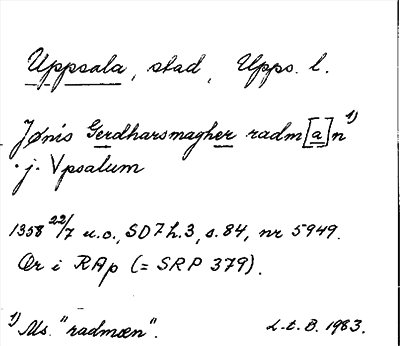 Uppsala, stad, Upps. l.
Jønis Gerdharsmagher radm[a]n 1)
· j · Vpsalum
1358 22/7 u.o., SD 7 h.3, s. 84, nr 5949.
Or i RAp (= SRP 379).
1) Ms. "radmæn".
L-t. B. 1983.